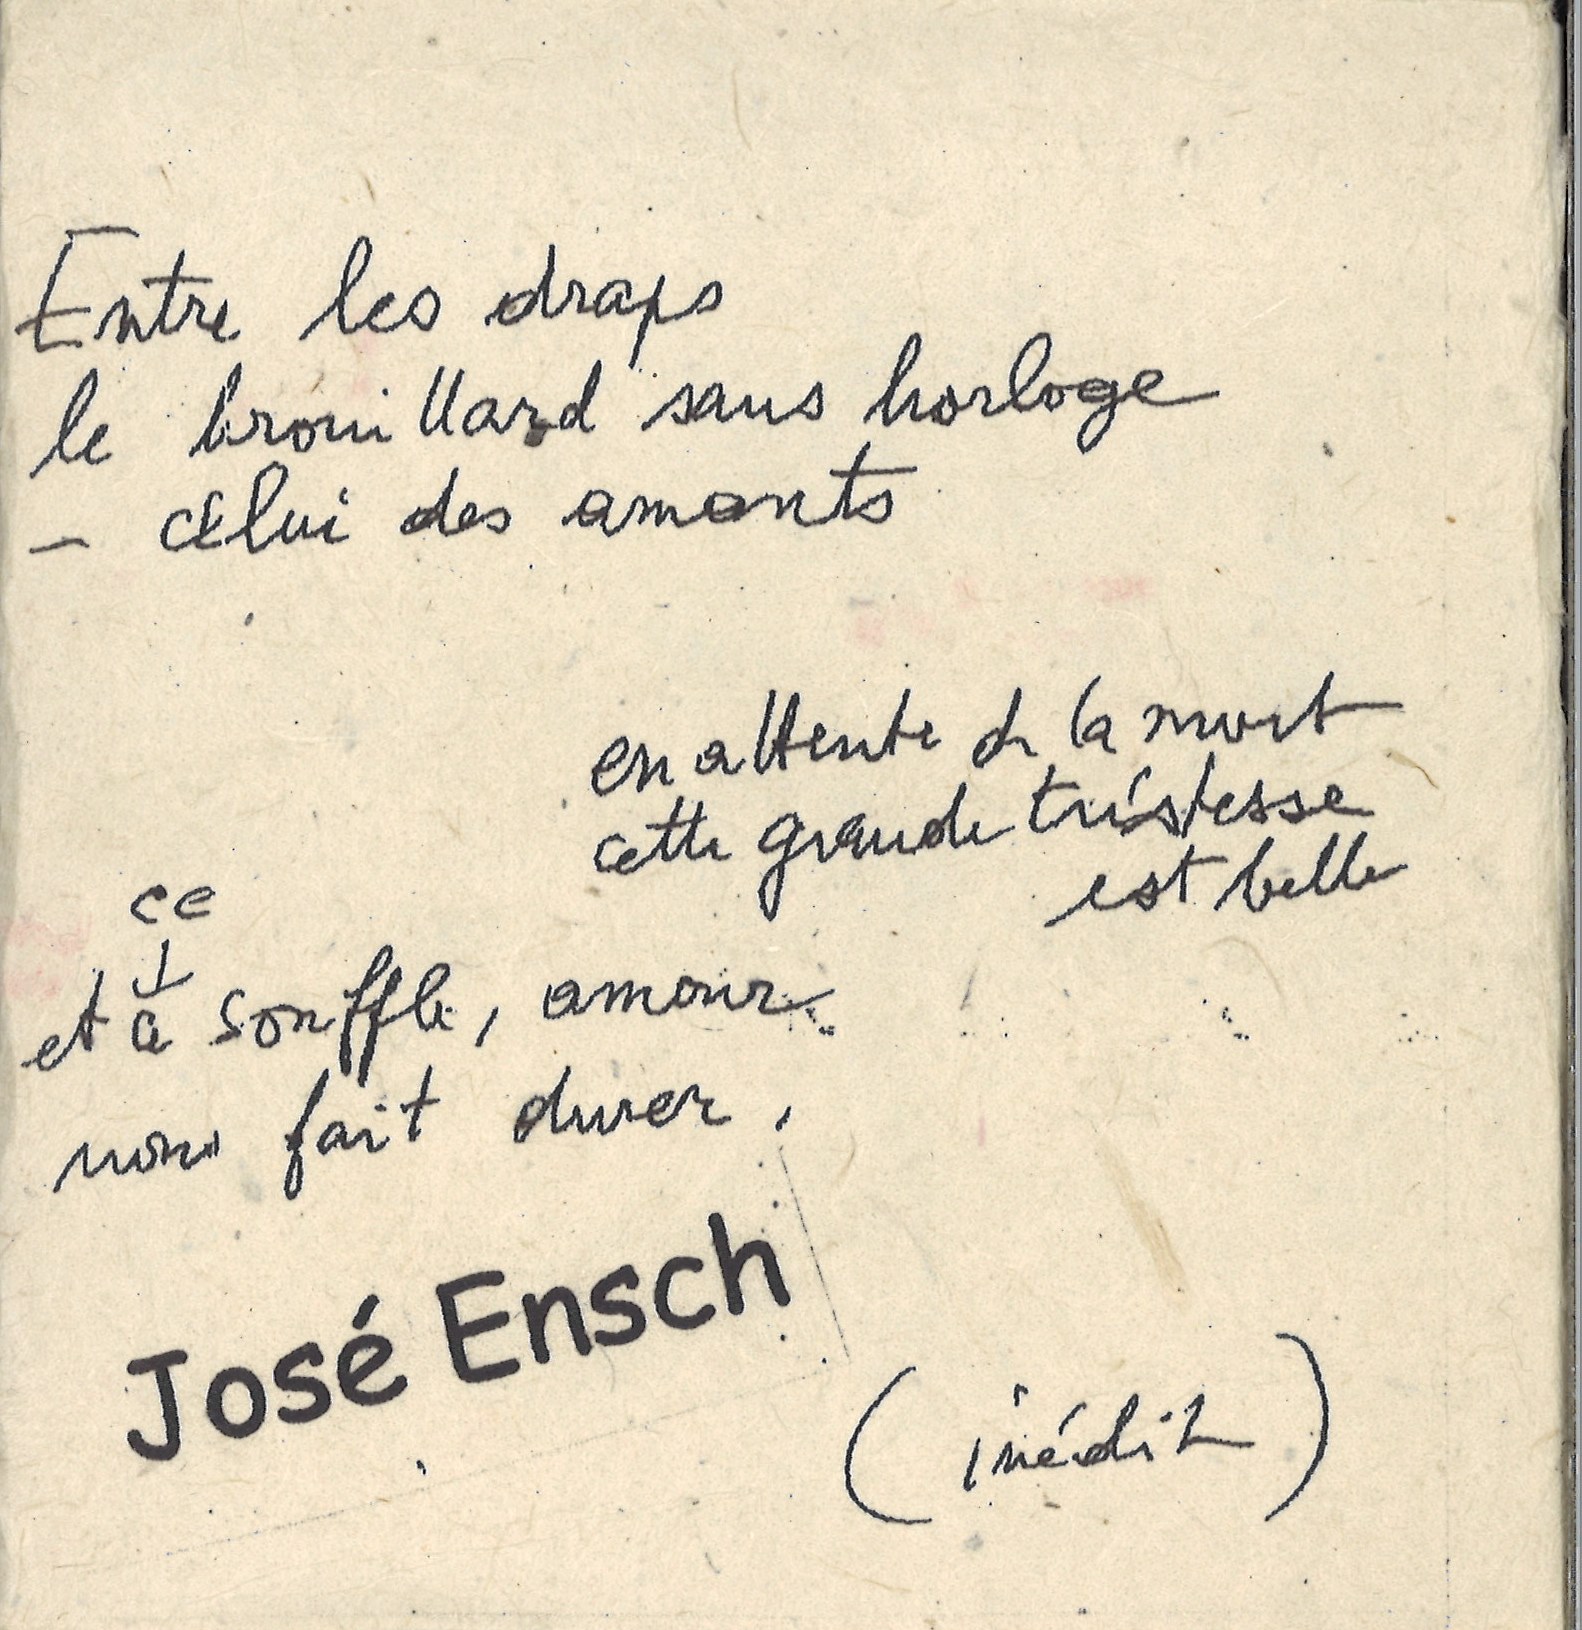 Entre les draps
le brouillard sans horloge
– celui des amants
en attente de la mort
cette grande tristesse
est belle
ce
et ce souffle, amour
nous fait durer.
José Ensch
(inédit)